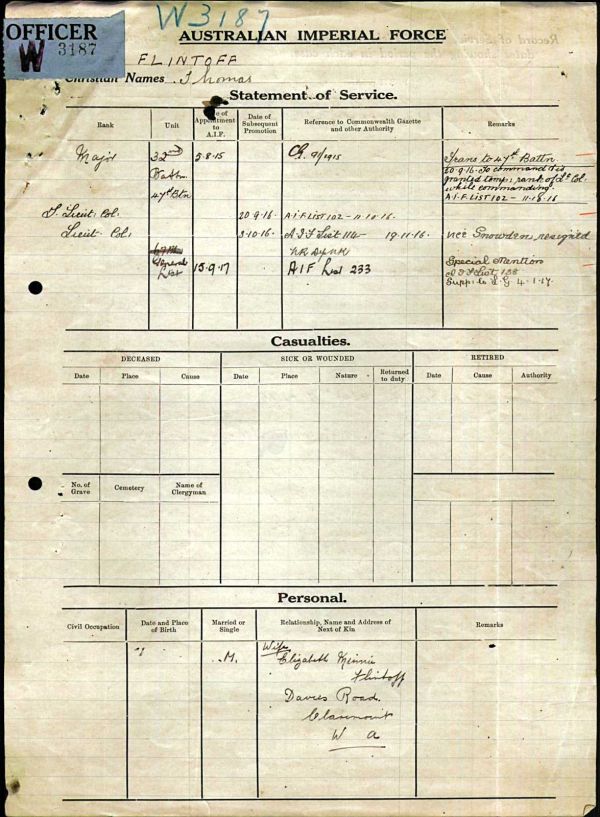 W3187
OFFICER
W 3187
AUSTRALIAN IMPERIAL FORCE
FLINTOFF
Christian Names Thomas
Statement of Service.
Rank
Unit
Date of Appointment to A.I.F.
Date of Subsequent Promotion
Reference to Commonwealth Gazette and other Authority
Remarks
Major
32nd
Battn.
47th Btn
5-8-15
91/1915
Trans to 47th Battn.
20-9-16. To command & is
granted temp. rank of Lt Col.
while commanding.
A.I.F. LIST 102 - 11-10-16
T. Lieut. Col.
20-9-16
A.I.F. LIST 102 - 11-10-16.
Lieut Col.
3-10-16
A I F List 114 - 19-11-16.
vice Snowden, resigned
General
List
15.9.17
AIF List 233
Special Mention
A I F List 138
Supp. to L.G. 4.1.17.
Casualties.
DECEASED
SICK OR WOUNDED
RETIRED
Date
Place
Cause
Date
Place
Nature
Returned to duty
Date
Cause
Authority
No. of Grave
Cemetery
Name of Clergyman
Personal.
Civil Occupation
Date and Place of Birth
Married or Single
Relationship, Name and Address of Next of Kin
Remarks
M.
Wife
Elizabeth Minnie
Flintoff
Davies Road.
Claremont
W A